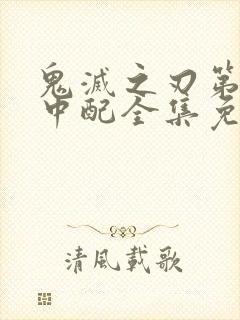 鬼滅之刃第
中配全集免
清風載歌